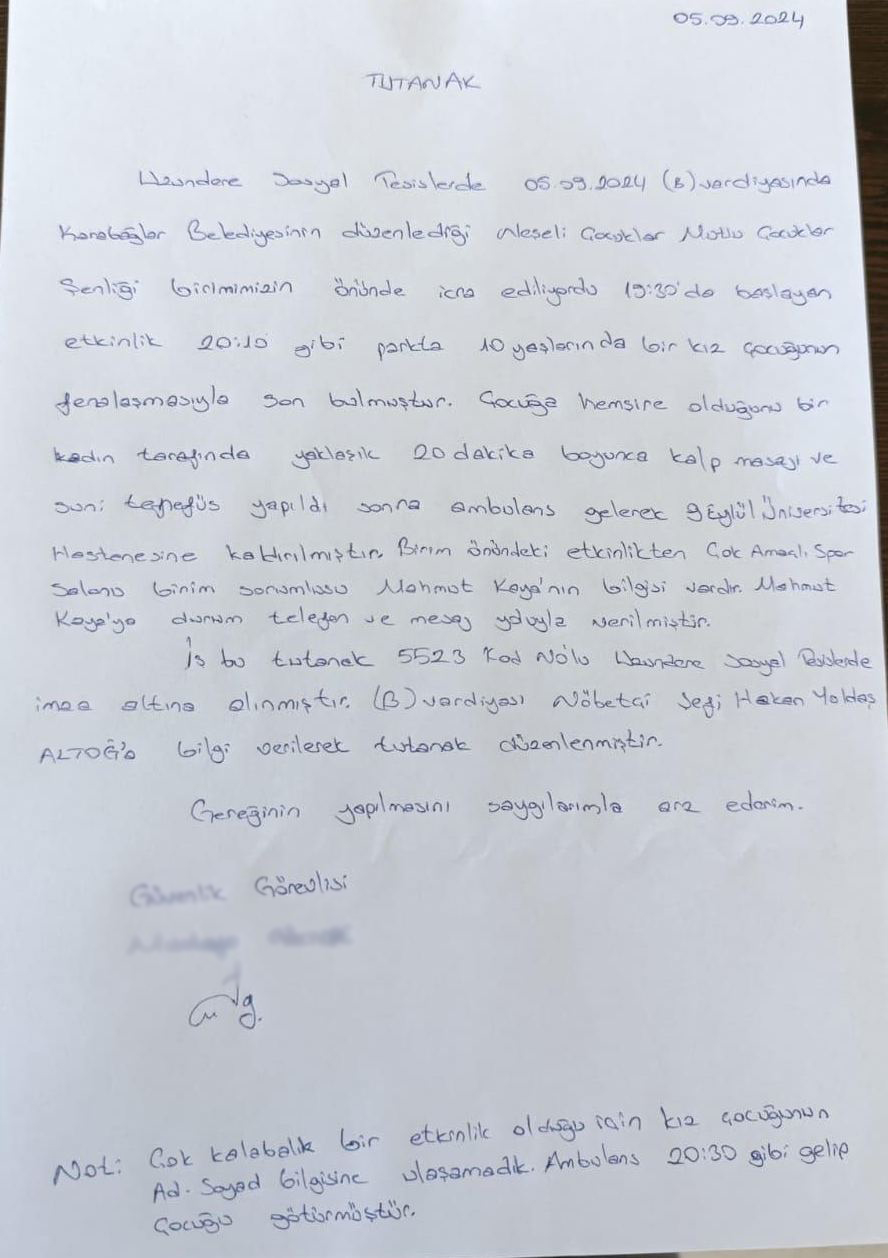 05.09.2024
TUTANAK
Uzundere Sosyal Tesislerde 05.09.2024 (B) vardiyasında
Karabağlar Belediyesinin düzenlediği Neşeli Çocuklar Mutlu Çocuklar
Şenliği birimimizin önünde icra ediliyordu 19:30'da başlayan
etkinlik 20:10 gibi parkta 10 yaşlarında bir kız çocuğunun
fenalaşmasıyla son bulmuştur. Çocuğa hemşire olduğunu bir
kadın tarafında yaklaşık 20 dakika boyunca kalp masajı ve
suni teneffüs yapıldı sonra ambulans gelerek 9 Eylül Üniversitesi
Hastenesine kaldırılmıştır. Birim önündeki etkinlikten Çok Amaçlı Spor
Salonu birim sorumlusu Mahmut Kaya'nın bilgisi vardır. Mahmut
Kaya'ya durum telefon ve mesaj yoluyla verilmiştir.
İş bu tutanak 5523 Kod No'lu Uzundere Sosyal Tesislerde
imza altına alınmıştır. (B) vardiyası Nöbetçi Şefi Hakan Yoldaş
ALTOĞ'a bilgi verilerek tutanak düzenlenmiştir.
Gereğinin yapılmasını saygılarımla arz ederim.
Güvenlik Görevlisi
Not: Çok kalabalık bir etkinlik olduğu için kız çocuğunun
Ad. Soyad bilgisine ulaşamadık. Ambulans 20:30 gibi gelip
Çocuğu götürmüştür.